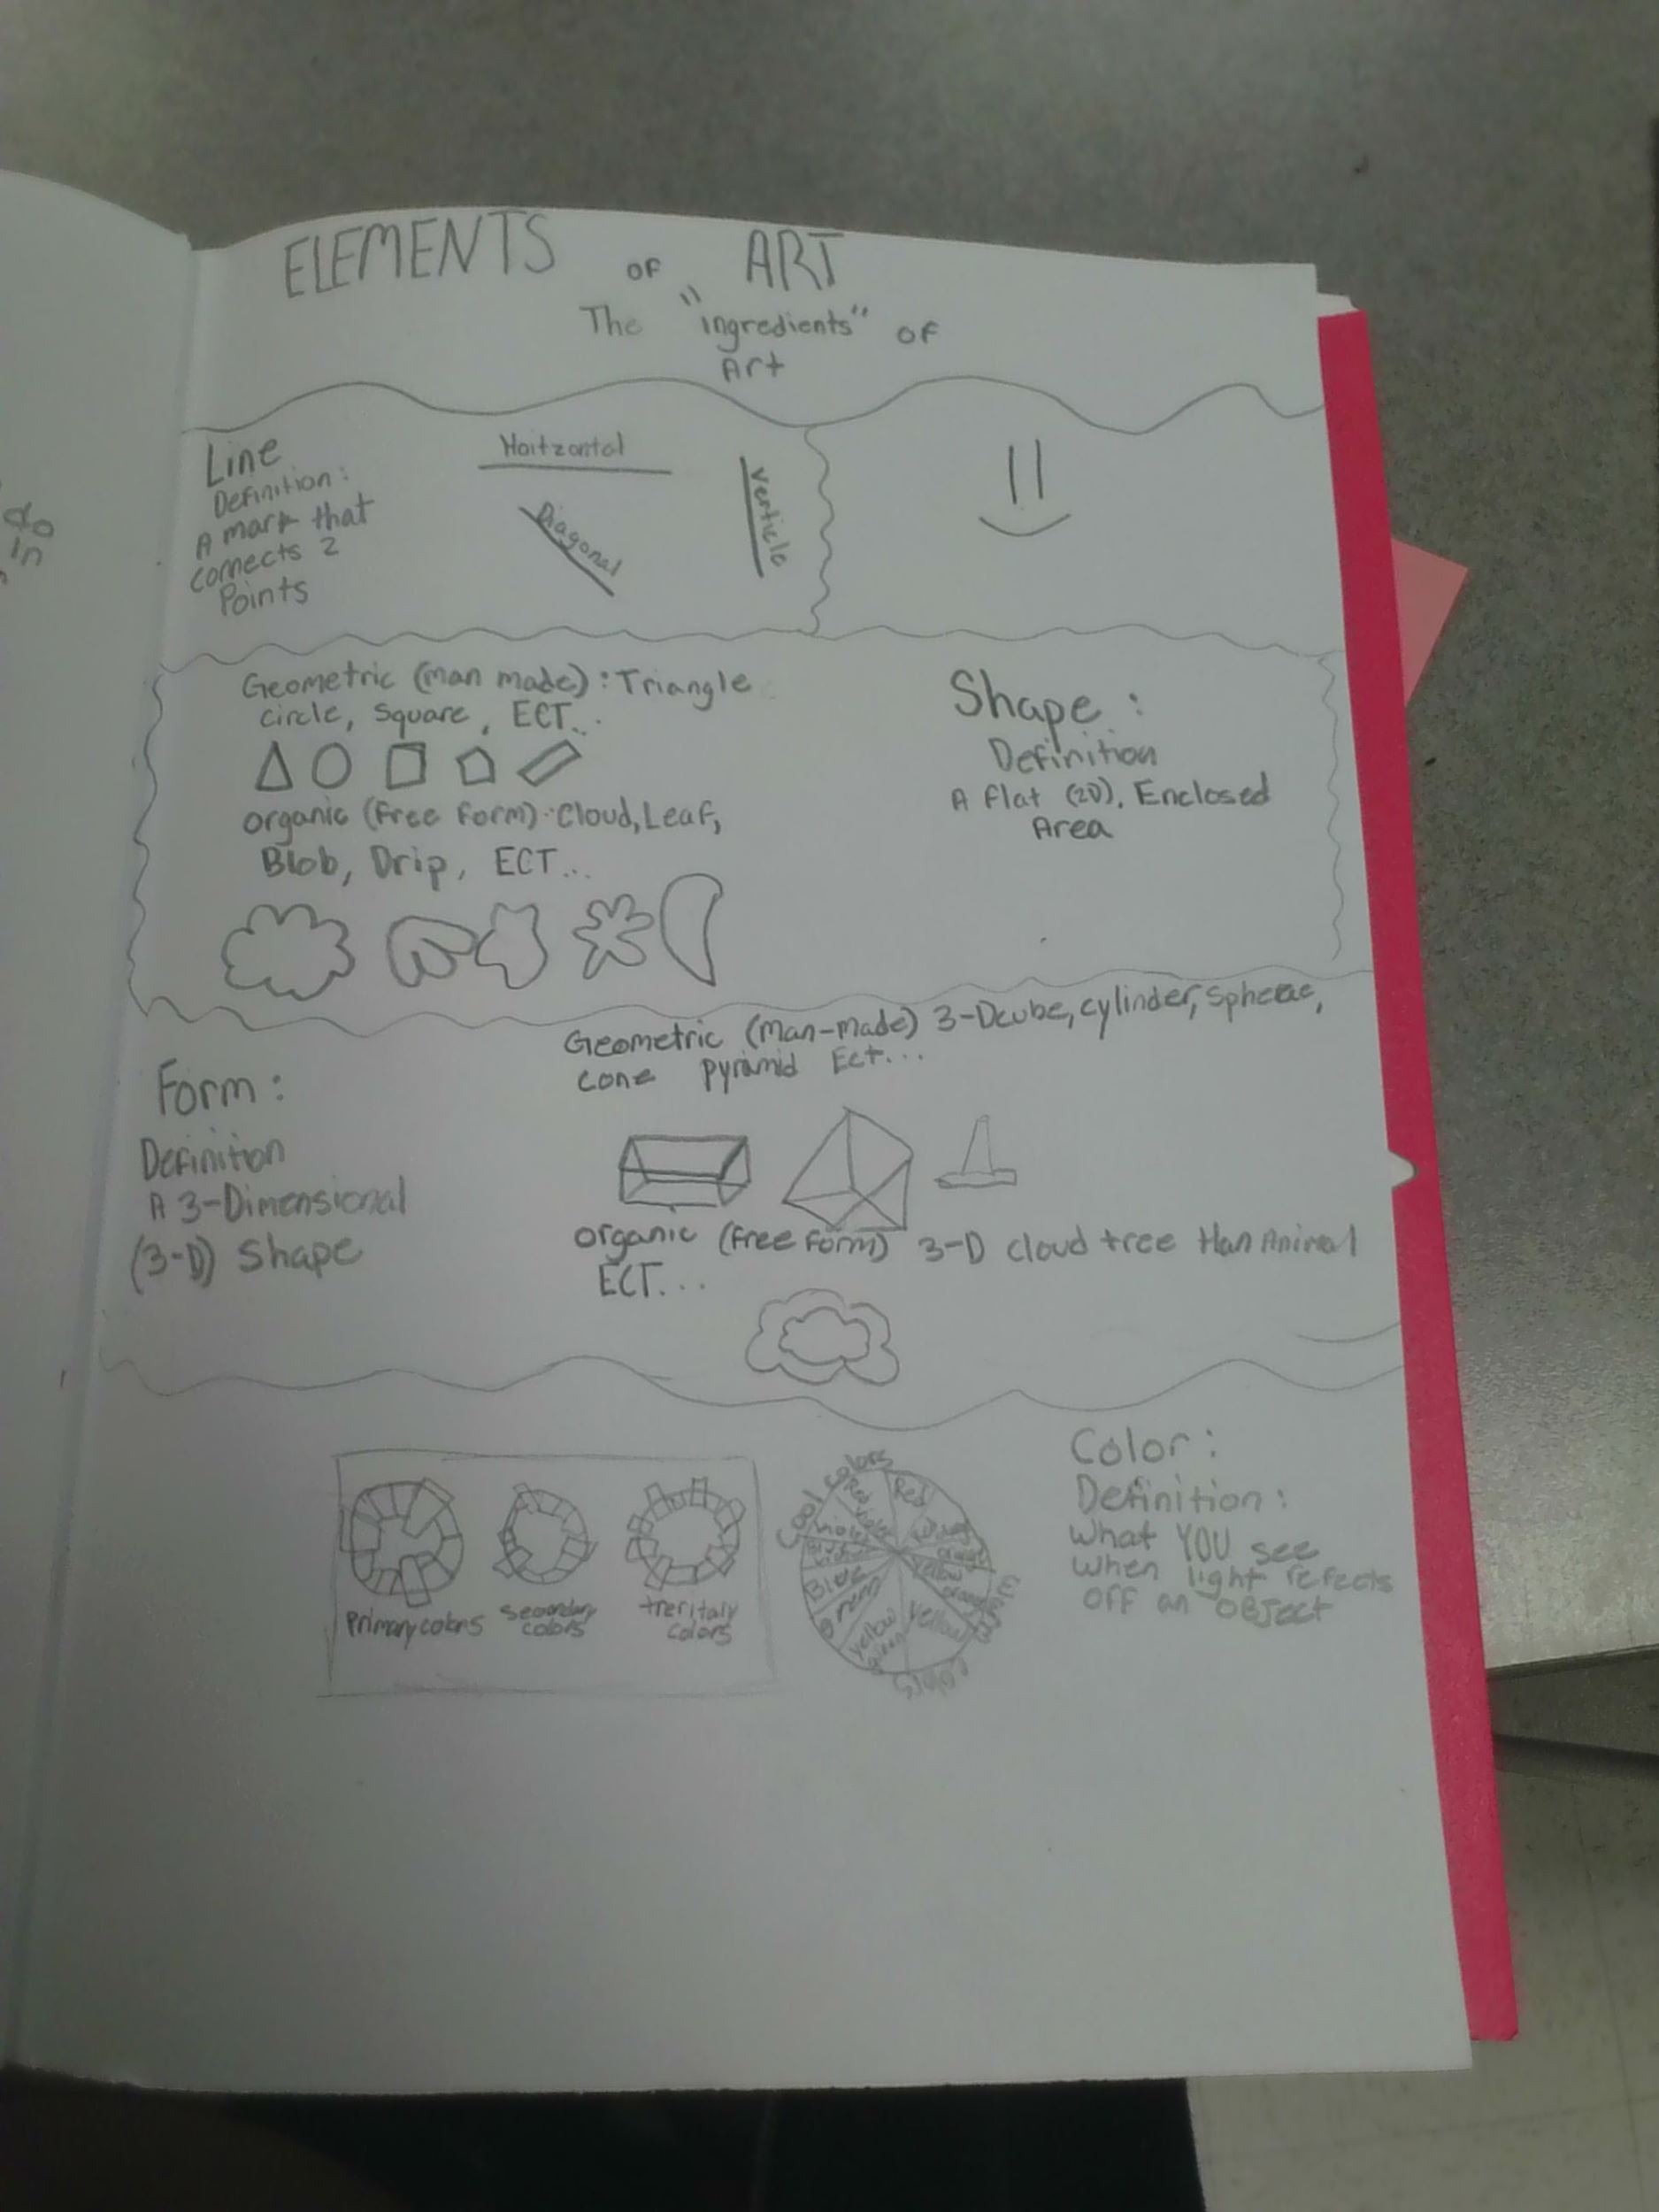 ELEMENTS OF ART
The "ingredients" OF
Art
Line
Definition:
A mark that
connects 2
Points
Hoitzontal
Diagonal
Verticle
do
in
Geometric (man made): Triangle
circle, square, ECT..
organic (Free Form): Cloud, Leaf,
Blob, Drip, ECT...
Shape:
Definition
A flat (2D), Enclosed
Area
Form:
Definition
A 3-Dimensional
(3-D) Shape
Geometric (Man-made) 3-Dcube, cylinder, spherae,
cone pyramid Ect...
organic (Free Form) 3-D cloud tree Animal
ECT...
Primary colors
Secondary
colors
treritaly
Colors
Cool colors
Red
Red
violet
violet
Blue
Green
yellow
green
yellow
yellow
orange
colors
Color:
Definition:
What YOU see
when light refects
OFF an OBJect